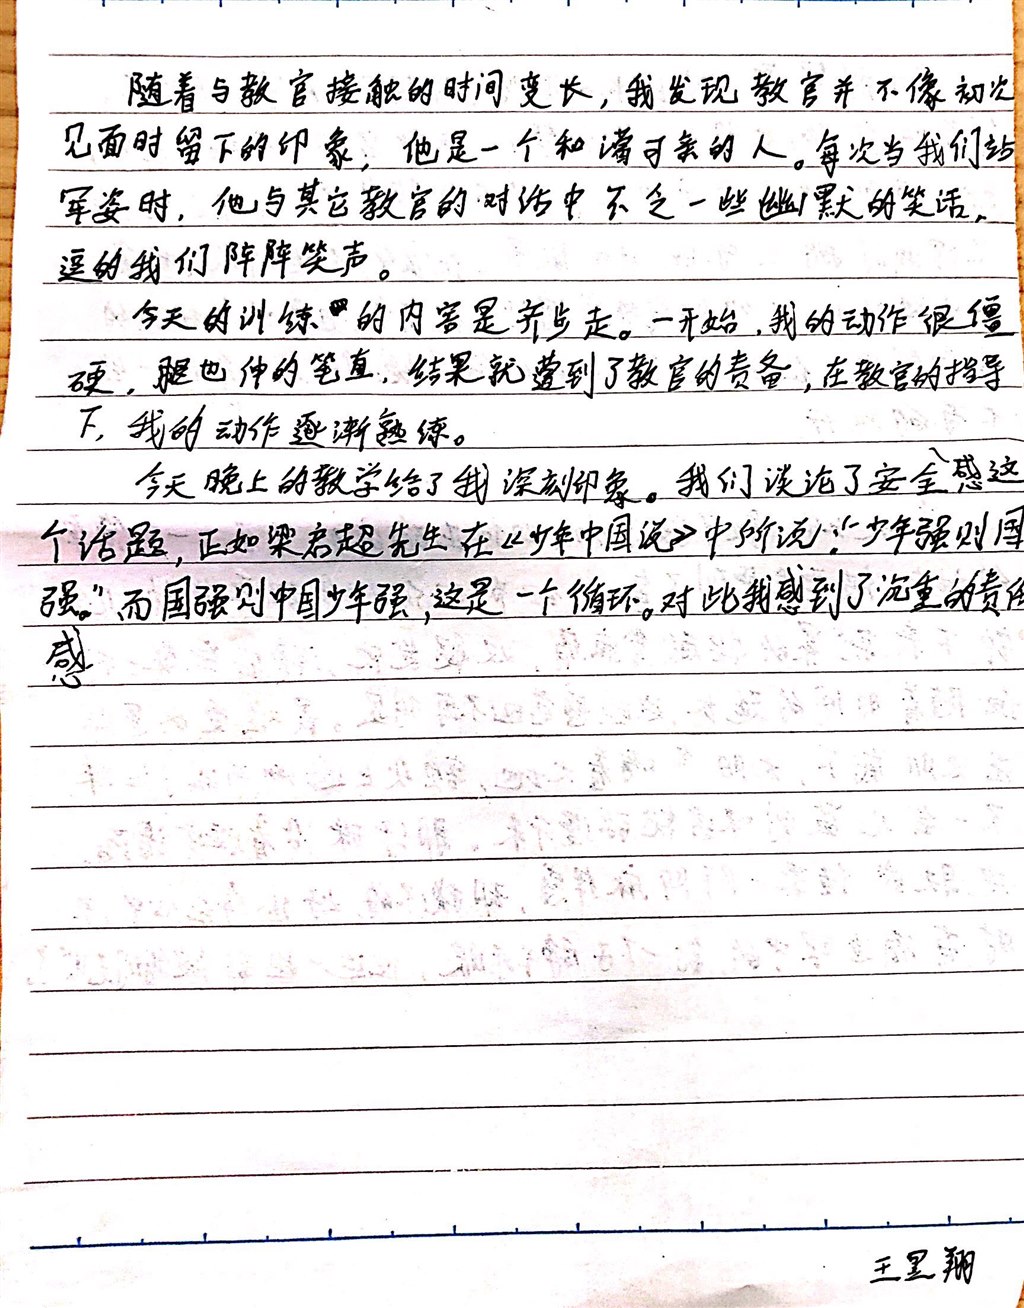 随着与教官接触的时间变长，我发现教官并不像初次
见面时留下的印象，他是一个和蔼可亲的人。每次当我们站
军姿时，他与其它教官的对话中不乏一些幽默的笑话，
逗的我们阵阵笑声。
今天的训练的内容是齐步走。一开始，我的动作很僵
硬，腿也伸的笔直，结果就遭到了教官的责备，在教官的指导
下，我的动作逐渐熟练。
今天晚上的教学给了我深刻印象。我们谈论了安全感这
个话题，正如梁启超先生在《少年中国说》中所说：“少年强则国
强。”而国强则中国少年强，这是一个循环。对此我感到了沉重的责任
感
王星翔